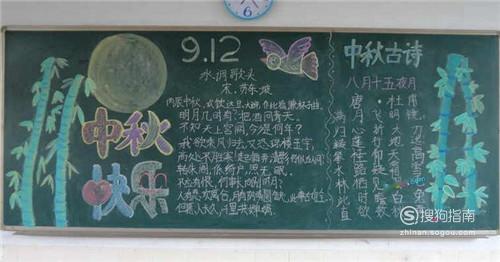 中秋
快乐
9.12
水调歌头
宋·苏东坡
丙辰中秋，欢饮达旦，大醉，作此篇，兼怀子由。
明月几时有？把酒问青天。
不知天上宫阙，今夕是何年？
我欲乘风归去，又恐琼楼玉宇，
高处不胜寒！起舞弄清影，何似在人间？
转朱阁，低绮户，照无眠。
不应有恨，何事长向别时圆？
人有悲欢离合，月有阴晴圆缺，此事古难全。
但愿人长久，千里共婵娟。
中秋古诗
八月十五夜月
唐·杜甫
满月飞明镜
归心折大刀
转蓬行地远
攀桂仰天高
水路疑霜雪
林栖见羽毛
此时瞻白兔
直欲数秋
搜狗指南
zhinan.sogou.com